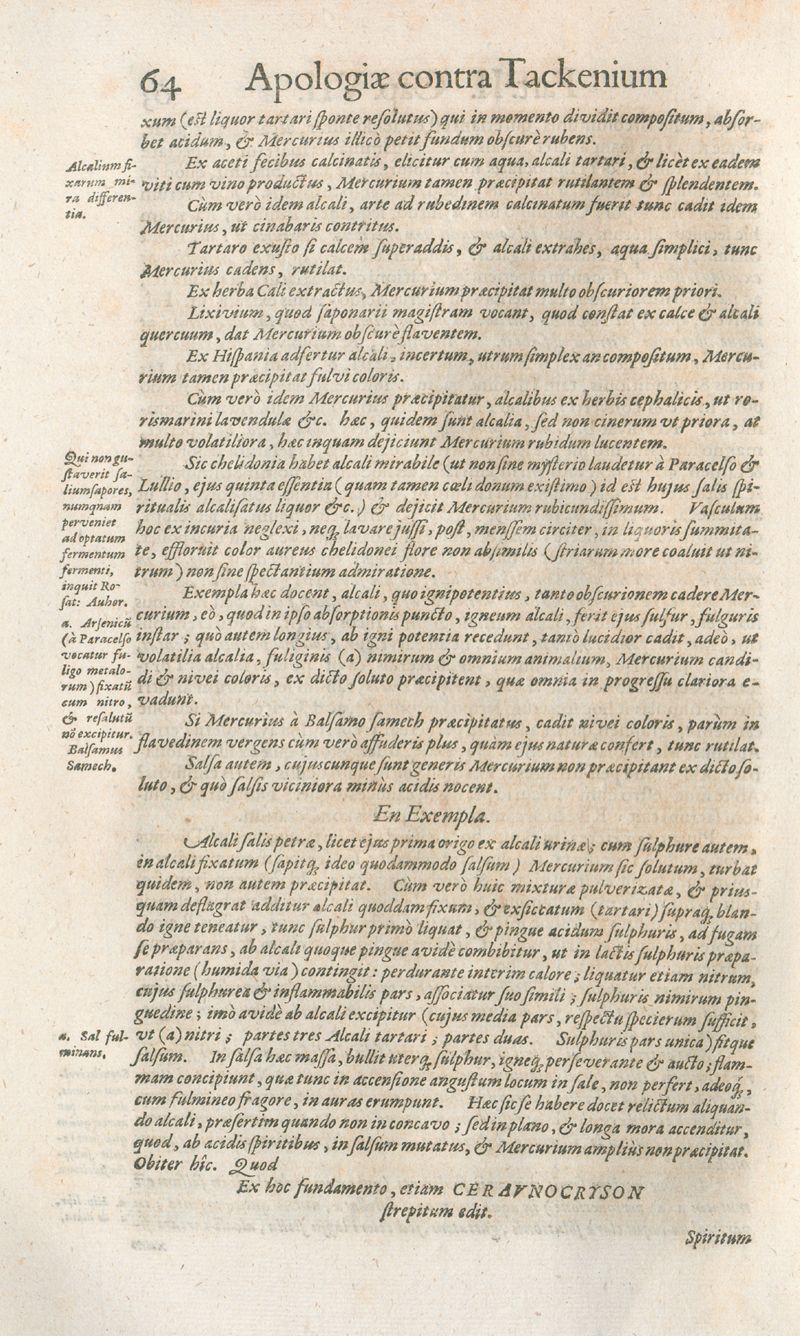 64 Apologiæ contra Tackenium
xum (est liquor tartari sponte resolutus) qui in momento dividit compositum, absor-
bet acidum, & Mercurius illicò petit fundum obscurè rubens.
Alcalium fi-
xarum mi-
ra differen-
tia.
Ex aceti fecibus calcinatis, elicitur cum aqua, alcali tartari, & licèt ex eadem
viti cum vino productus, Mercurium tamen præcipitat rutilantem & splendentem.
Cùm verò idem alcali, arte ad rubedinem calcinatum fuerit tunc cadit idem
Mercurius, ut cinabaris contritus.
Tartaro exusto si calcem superaddis, & alcali extrahes, aqua simplici, tunc
Mercurius cadens, rutilat.
Ex herba Cali extractus, Mercurium præcipitat multo obscuriorem priori.
Lixivium, quod saponarii magistram vocant, quod constat ex calce & alcali
quercuum, dat Mercurium obscurè flaventem.
Ex Hispania adfertur alcali, incertum, utrum simplex an compositum, Mercu-
rium tamen præcipitat fulvi coloris.
Cùm verò idem Mercurius præcipitatur, alcalibus ex herbis cephalicis, ut ro-
rismarini lavendulæ &c. hæc, quidem sunt alcalia, sed non cinerum vt priora, at
multo volatiliora, hæc inquam dejiciunt Mercurium rubidum lucentem.
Qui non gu-
staverit sa-
lium sapores,
numqnam
perveniet
ad optatum
fermentum
fermenti,
inquit Ro-
sat: Auhor.
Sic chelidonia habet alcali mirabile (ut non sine mysterio laudetur à Paracelso &
Lullio, ejus quinta essentia (quam tamen cœli donum existimo) id est hujus salis spi-
ritualis alcalisatus liquor &c.) & dejicit Mercurium rubicundissimum. Vasculum
hoc ex incuria neglexi, neq; lavare jussi, post, menssem circiter, in liquoris summita-
te, effloruit color aureus chelidonei flore non absimilis (striarum more coaluit ut ni-
trum) non sine spectantium admiratione.
a. Arsenicũ
(à Paracelso
vocatur fu-
ligo metalo-
rum) fixatũ
cum nitro,
& resalutũ
nõ excipitur.
Balsamus
Samech.
Exempla hæc docent, alcali, quo ignipotentius, tanto obscurionem cadere Mer-
curium, eò, quod in ipso absorptionis puncto, igneum alcali, ferit ejus sulfur, fulguris
instar; quò autem longius, ab igni potentia recedunt, tantò lucidior cadit, adeò, ut
volatilia alcalia, fuliginis (a) nimirum & omnium animalium, Mercurium candi-
di & nivei coloris, ex dicto soluto præcipitent, quæ omnia in progressu clariora e-
vadunt.
Si Mercurius à Balsamo samech præcipitatus, cadit nivei coloris, parùm in
flavedinem vergens cùm verò affuderis plus, quàm ejus natura confert, tunc rutilat.
Salsa autem, cujuscunque sunt generis Mercurium non præcipitant ex dicto so-
luto, & quò salsis viciniora minùs acidis nocent.
En Exempla.
Alcali salis petræ, licet ejus prima origo ex alcali urinæ; cum sulphure autem,
in alcali fixatum (sapitq; ideo quodammodo salsum) Mercurium sic solutum, turbat
quidem, non autem præcipitat. Cùm verò huic mixturæ pulverizatæ, & prius-
quam deflagrat additur alcali quoddam fixum, & exsiccatum (tartari) supraq; blan-
do igne teneatur, tunc sulphur primò liquat, & pingue acidum sulphuris, ad fugam
se præparans, ab alcali quoque pingue avidè combibitur, ut in lactis sulphuris præpa-
ratione (humida via) contingit: perdurante interim calore; liquatur etiam nitrum,
cujus sulphurea & inflammabilis pars, associatur suo simili; sulphuris nimirum pin-
guedine; imò avidè ab alcali excipitur (cujus media pars, respectu specierum sufficit,
a. Sal ful-
minans.
vt (a) nitri; partes tres Alcali tartari; partes duas. Sulphuris pars unica) fitque
salsum. In salsa hæc massa, bullit uterq; sulphur, igneq; perseverante & aucto; flam-
mam concipiunt, quæ tunc in accensione angustum locum in sale, non perfert, adeoq;,
cum fulmineo fragore, in auras erumpunt. Hæc sic se habere docet relictum aliquan-
do alcali, præsertim quando non in concavo; sed in plano, & longa mora accenditur,
quod, ab acidis spiritibus, in salsum mutatus, & Mercurium ampliùs non præcipitat.
Obiter hîc. Quod
Ex hoc fundamento, etiam CERAVNOCRYSON
strepitum edit.
Spiritum